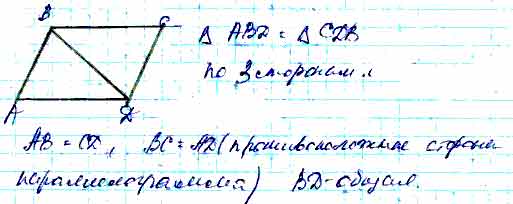 B C
△ ABD = △ CDB
по 3 сторонам.
A D
AB = CD, BC = AD (противоположные стороны
параллелограмма) BD - общая.